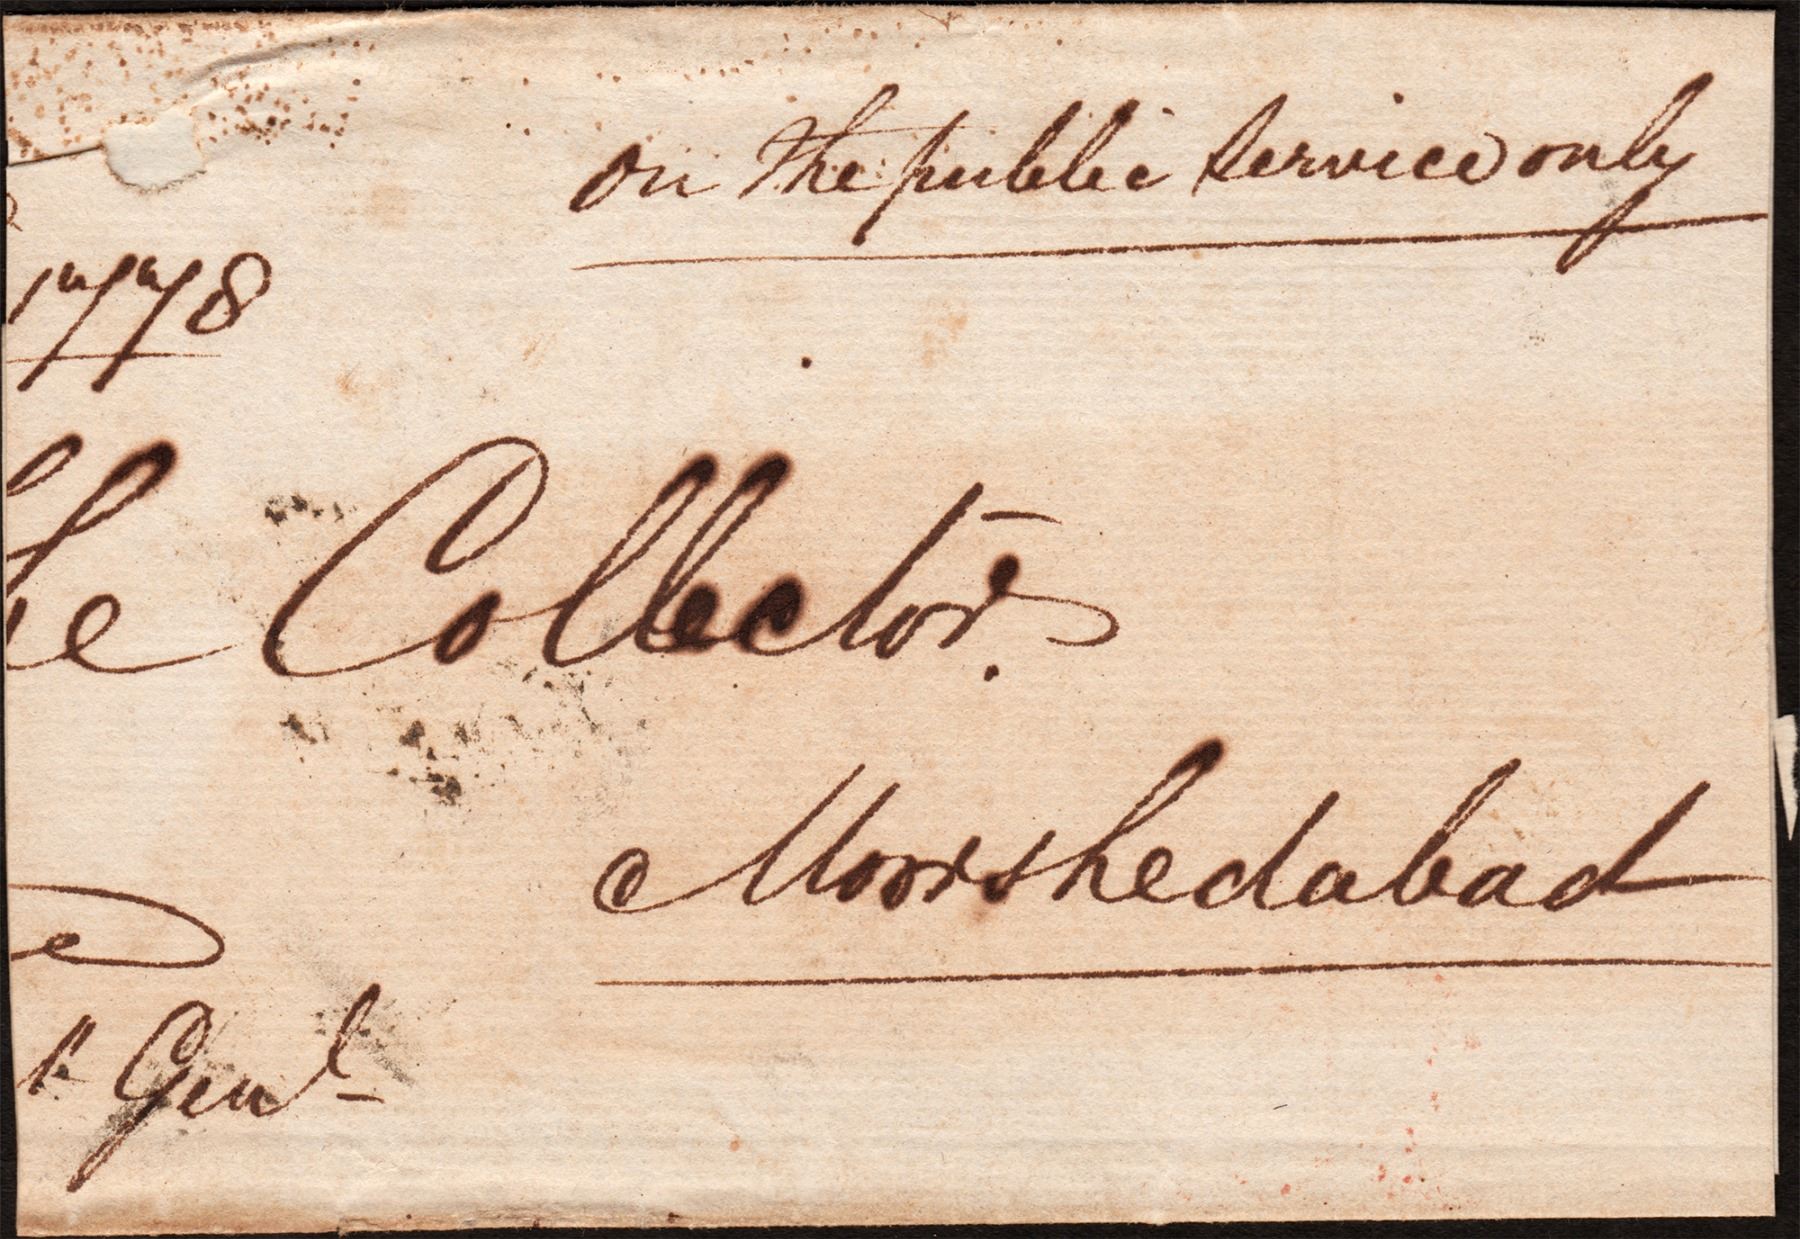 on the public Service only
1778
he Collector.
Moorshedabad
Genl